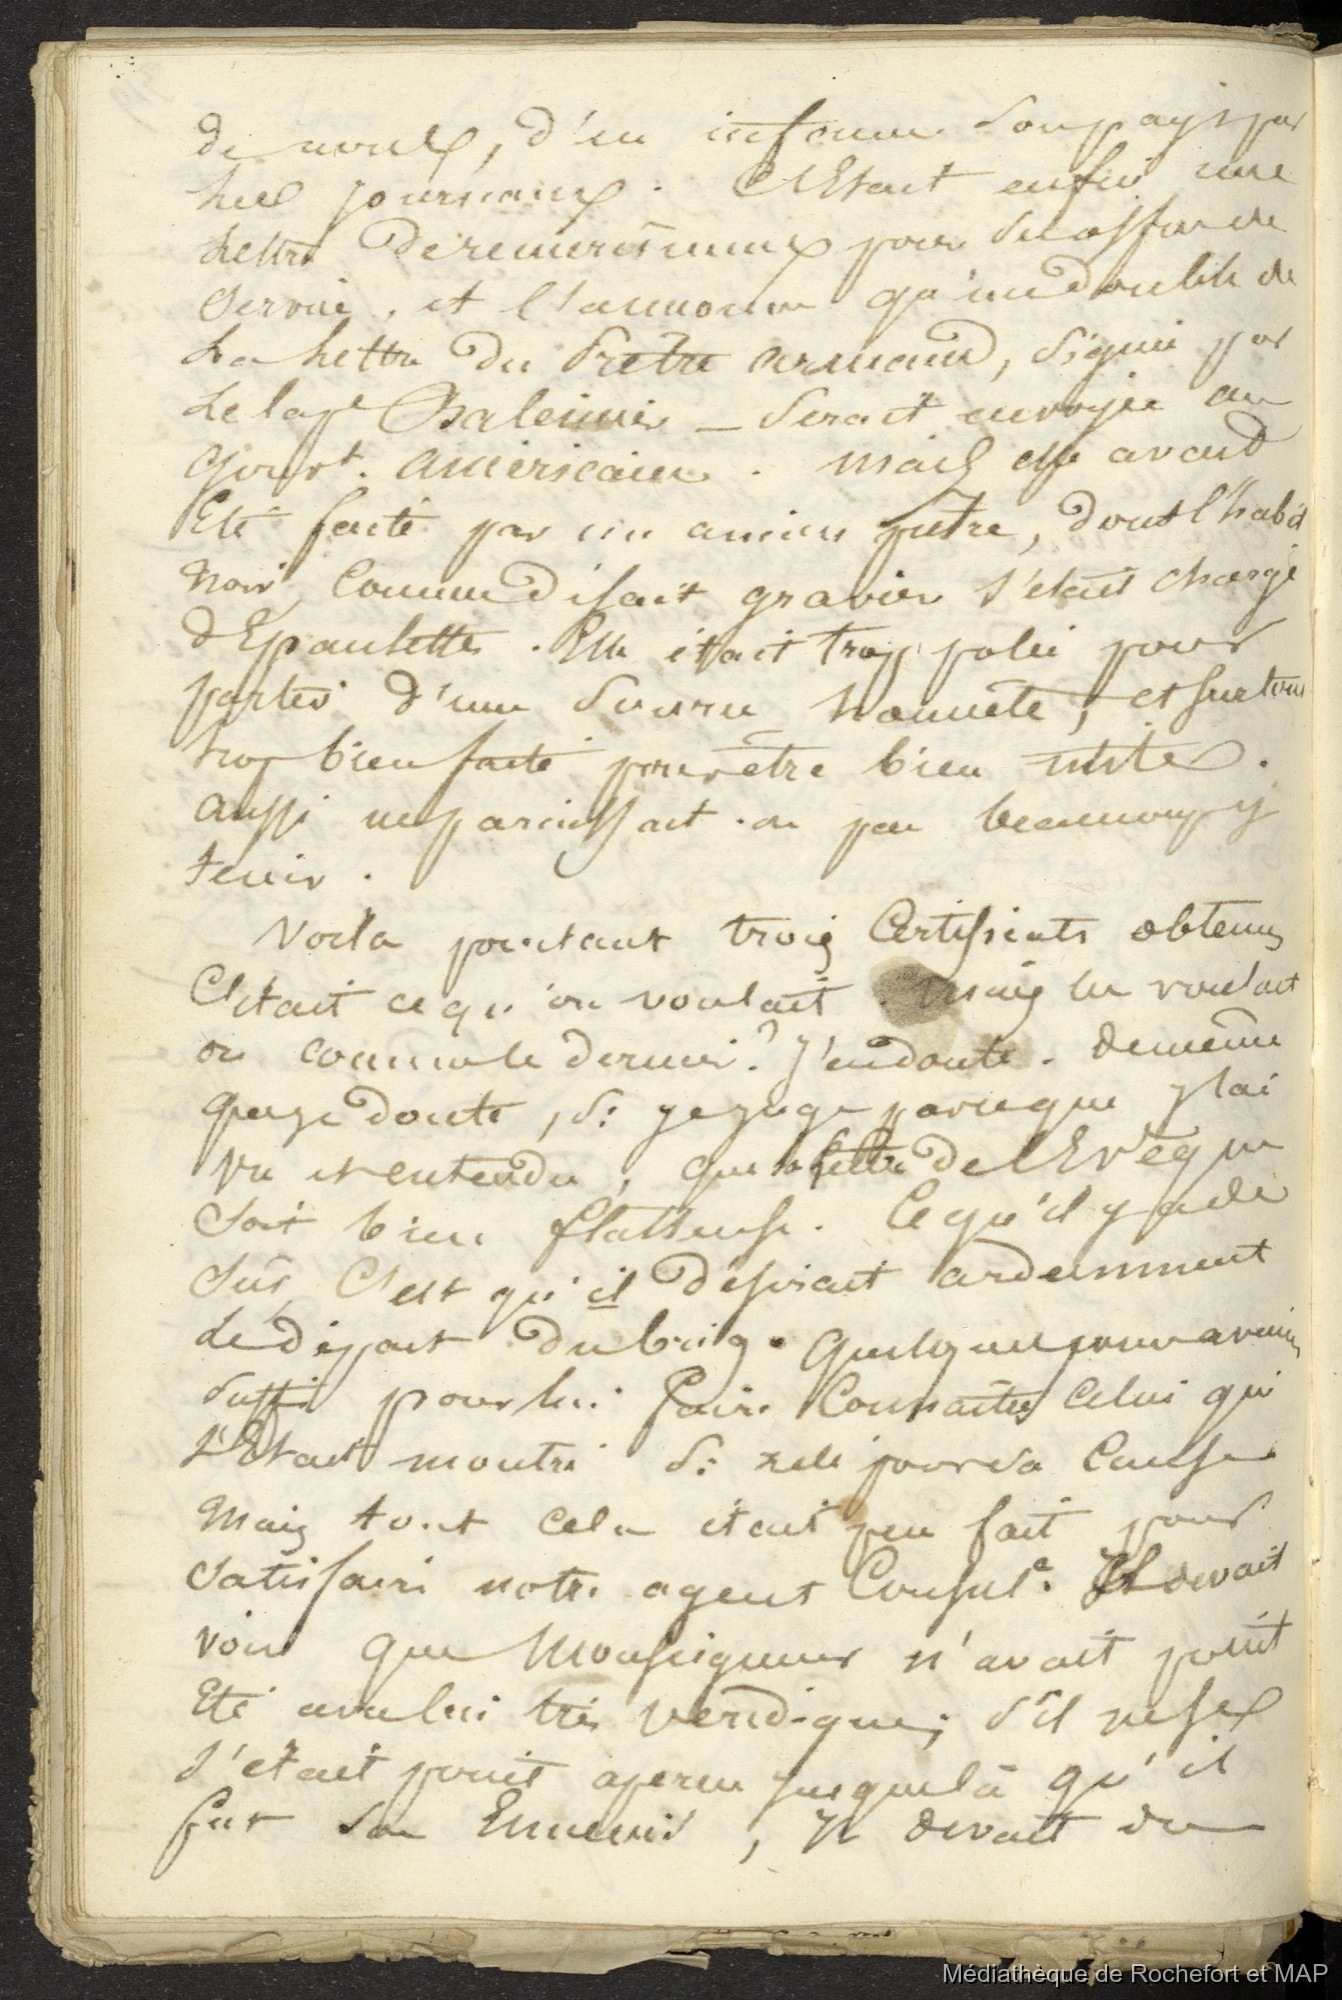 de nous, d'en informer son pays par
les journaux. C'Etait enfin une
Lettre de remercimens pour
Service, et l'annonce qu'un double de
La Lettre du Prêtre armand, signée par
Le Cape Baleinier _ serait envoyée au
Gouvt. américain. mais elle avait
Eté faite par un ancien prêtre, dont l'habit
Noir, Comme disait gravier s'etait chargé
d'Epaulettes. Elle était trop polie pour
partir d'une Source honnête, et surtout
trop bien faite pour être bien utile.
aussi ne paraissait-on pas beaucoup y
tenir.
Voila pourtant trois Certificats obtenus
C'était ce qu'on voulait. Mais les voulait
on comme le dernier? J'en doute. de même
que je doute, si je juge par ce que j'ai
vu et entendu, que la lettre de l'Evêque
Soit bien flatteuse. Ce qu'il y a de
Sûr, C'est qu'il desirait ardemment
Le départ du brig. quelques jours avaient
Suffi pour lui faire Connaître Celui qui
s'Etait montré si zelé pour sa Cause
Mais tout cela était peu fait pour
Satisfaire notre agent Consule. Il devait
voir que Monseigneur n'avait point
Eté avec lui très veridique; s'il
s'était point aperçu jusques là qu'il
fut son Ennemi, Il devait
Médiathèque de Rochefort et MAP